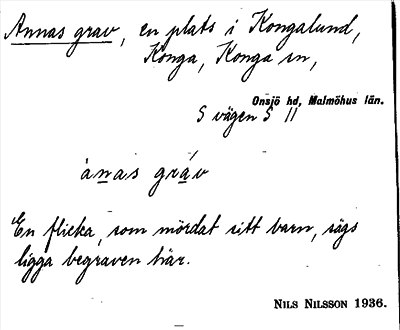 Annas grav, en plats i Kongalund,
Konga, Konga sn,
Onsjö hd, Malmöhus län.
S vägen S 11
ànas gráv
En flicka, som mördat sitt barn, sägs
ligga begraven här.
NILS NILSSON 1936.